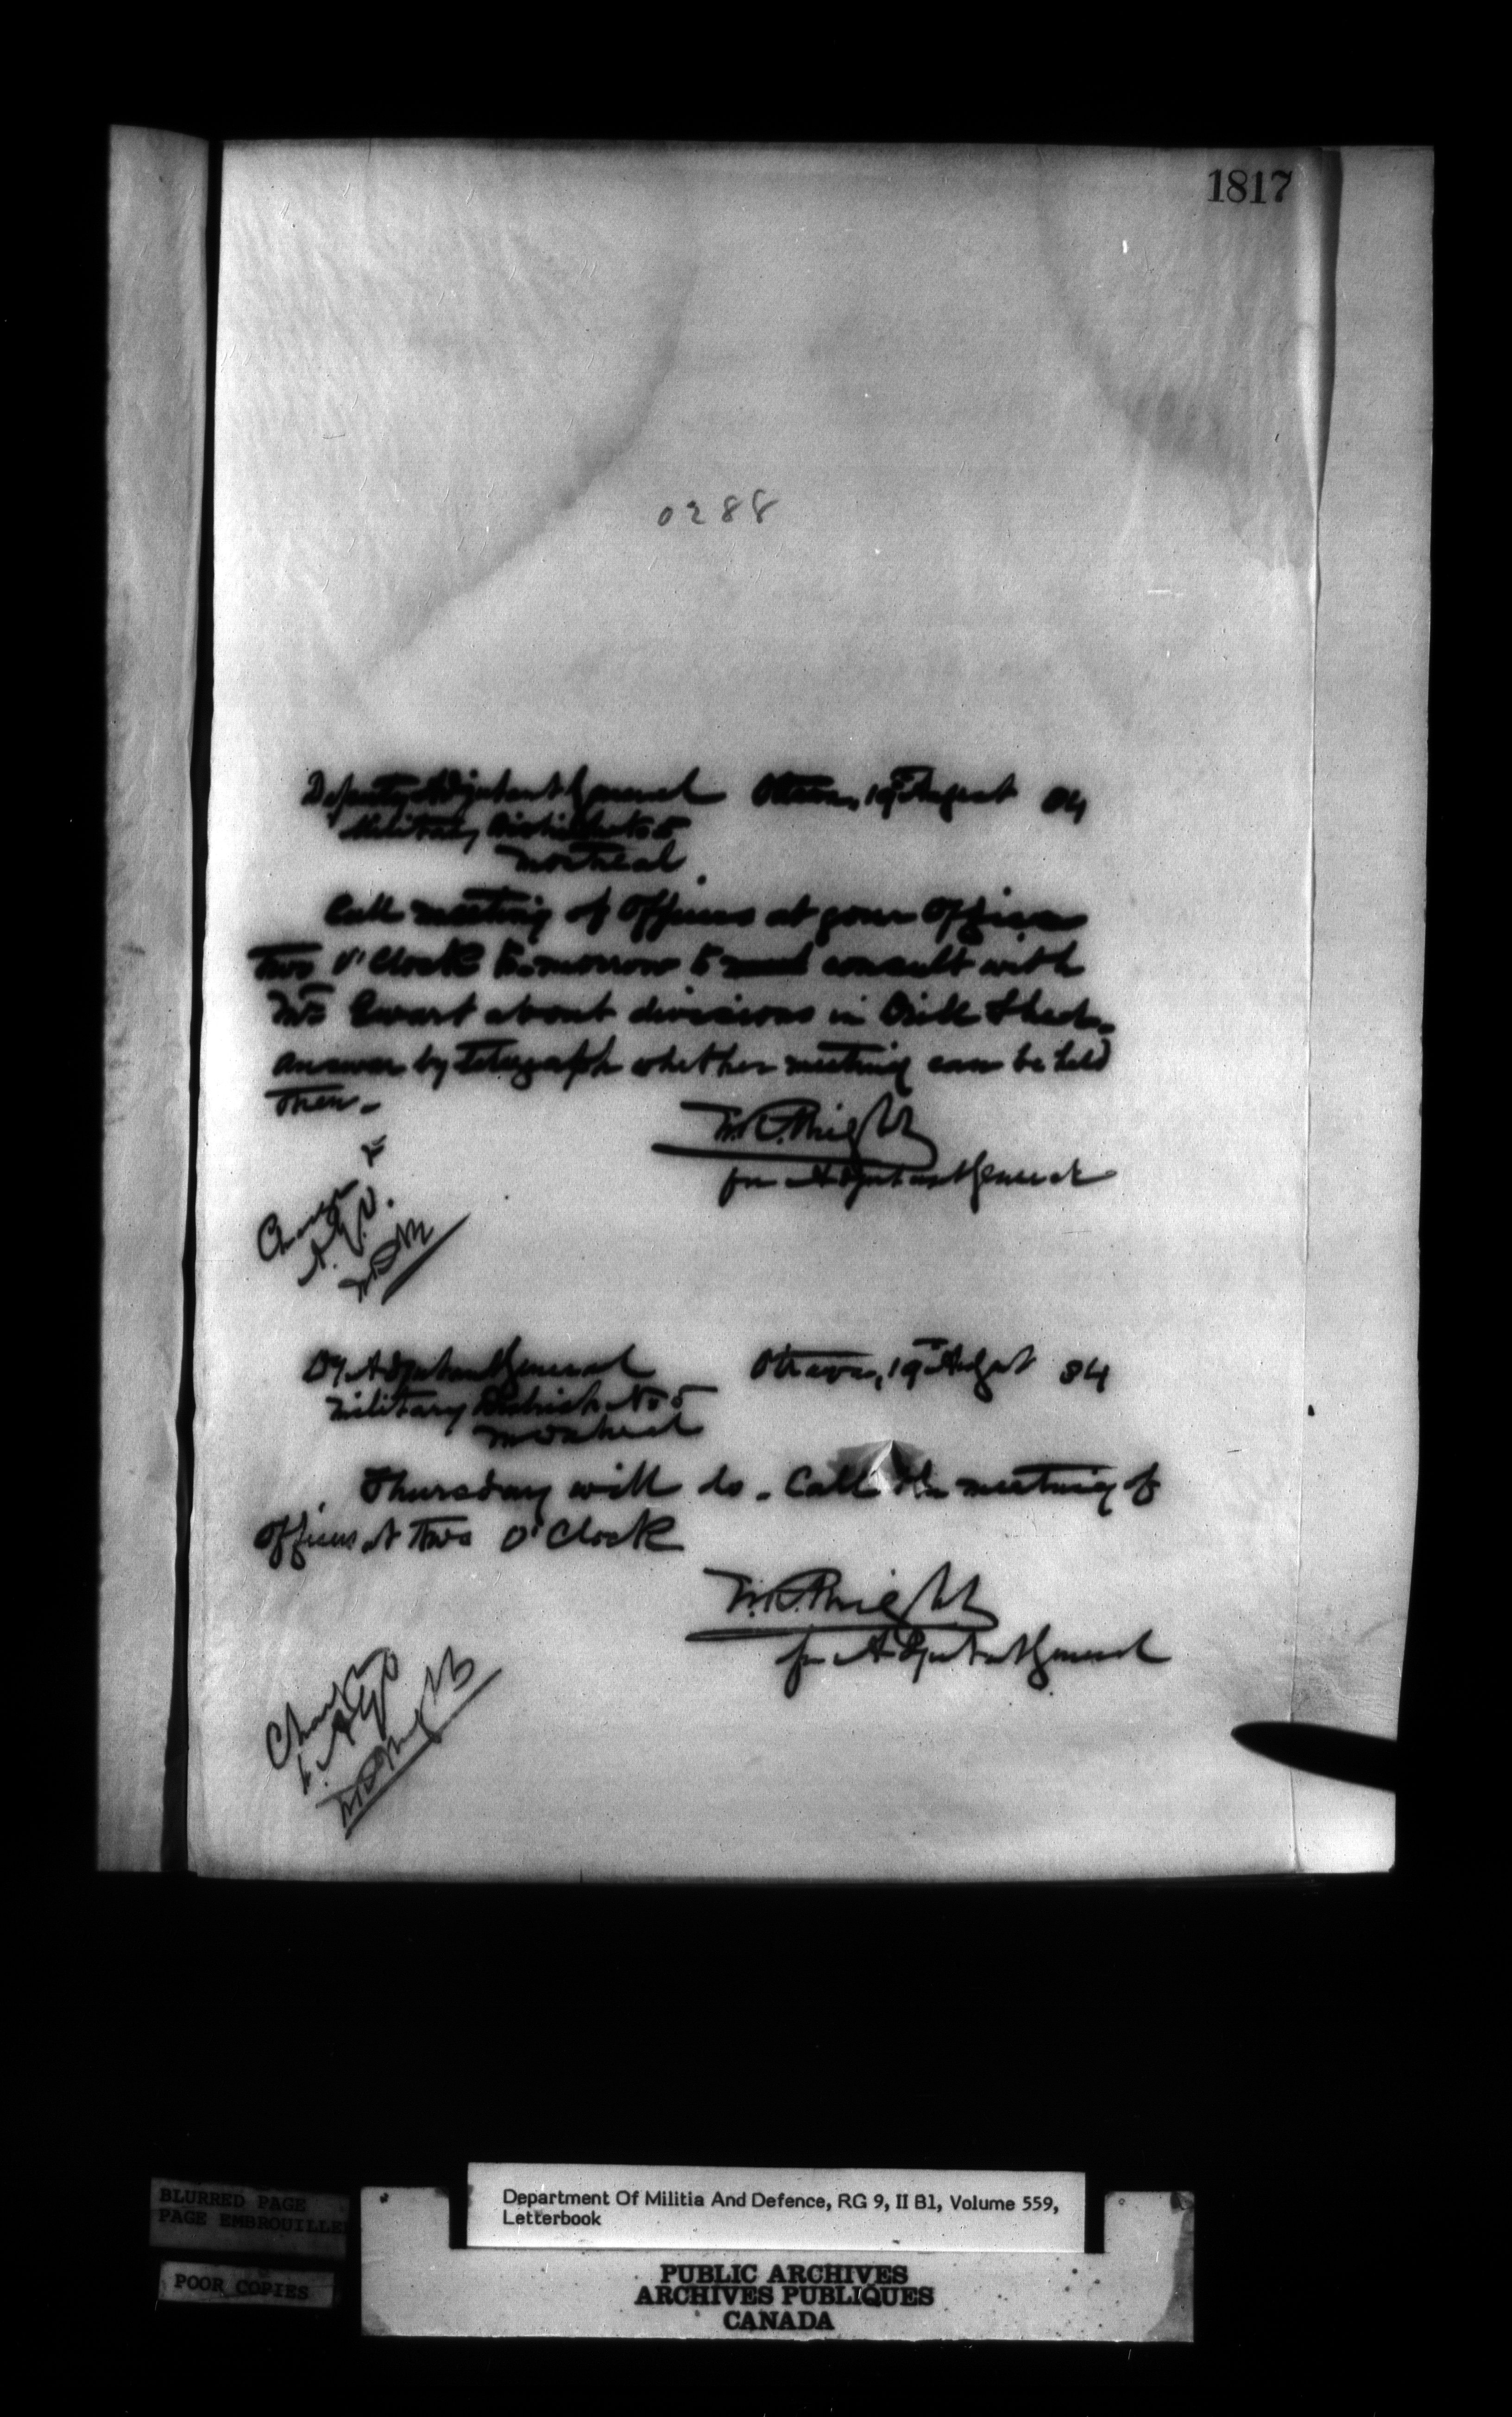 1817
0288
Deputy Adjutant General Ottawa, 19th August 84
Military District No 5
Montreal
Call meeting of Officers at your Office
Two O'Clock to-morrow to consult with
Mr Ewart about divisions in Drill Shed.
answer by telegraph whether meeting can be held
then.
for Adjutant General
A.G.O.
Dy Adjutant General Ottawa, 19th August 84
Military District No 5
Montreal
Thursday will do. Call the meeting of
Officers at Two O'Clock
for Adjutant General
Charge
to A.G.O
BLURRED PAGE
PAGE EMBROUILLE
POOR COPIES
Department Of Militia And Defence, RG 9, II B1, Volume 559,
Letterbook
PUBLIC ARCHIVES
ARCHIVES PUBLIQUES
CANADA